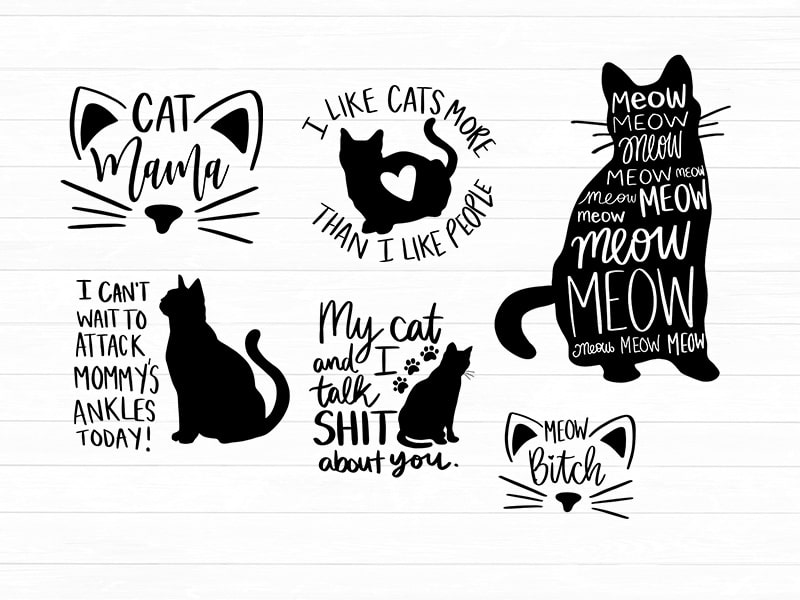 CAT
Mama
I LIKE CATS MORE
THAN I LIKE PEOPLE
MEOW
MEOW
meow
MEOW meow
meow MEOW
meow
meow
MEOW
meow MEOW MEOW
I CAN'T
WAIT TO
ATTACK
MOMMY'S
ANKLES
TODAY!
My cat
and I
talk
SHIT
about you.
MEOW
Bitch